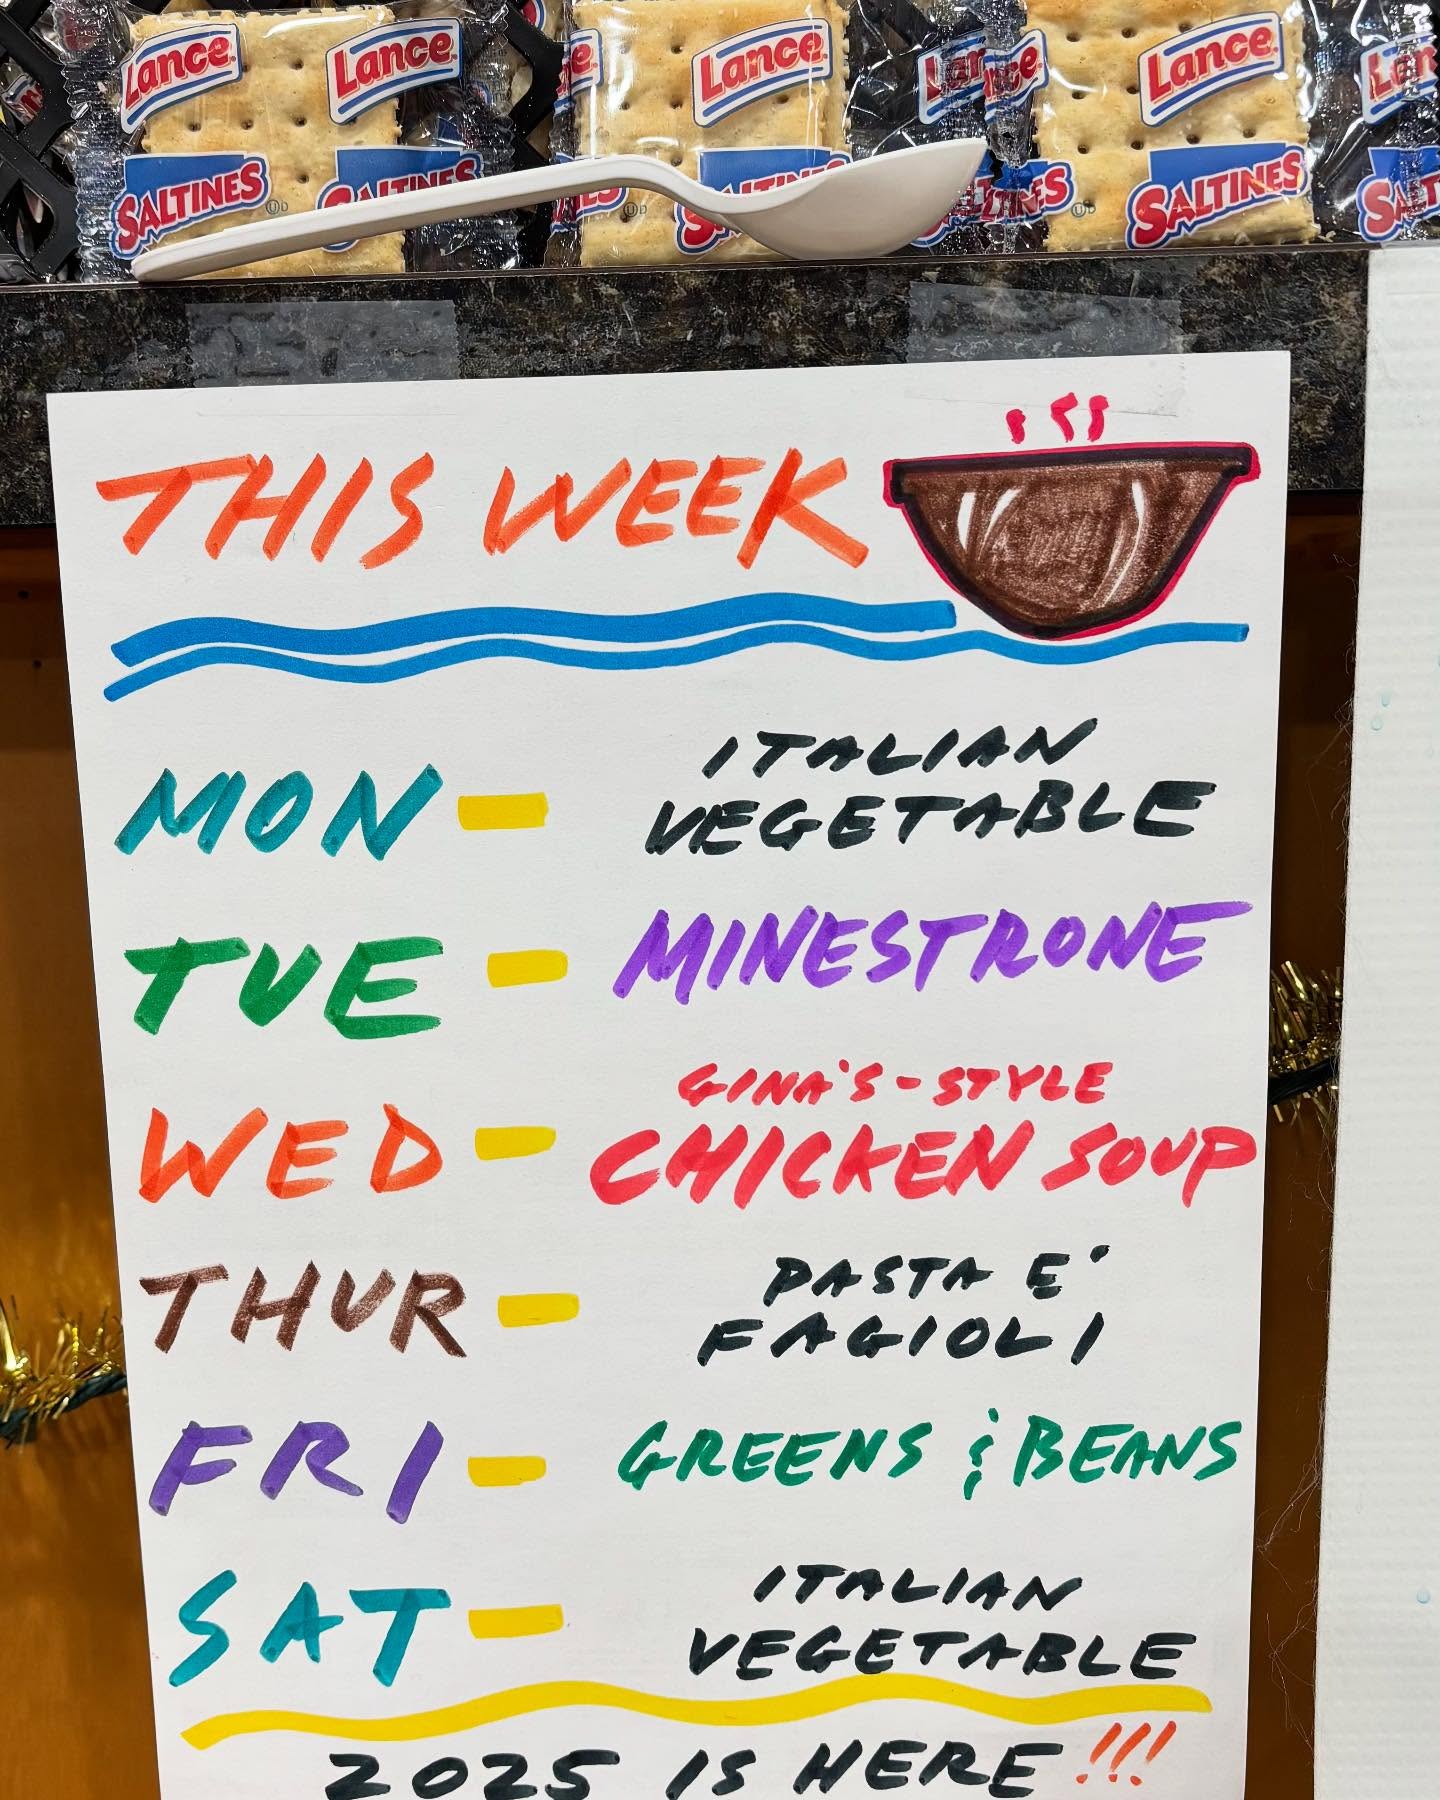 Lance Lance Lance Lance
SALTINES SALTINES SALTINES
THIS WEEK
MON - ITALIAN
VEGETABLE
TUE - MINESTRONE
GINA'S-STYLE
WED - CHICKEN SOUP
THUR - PASTA E'
FAGIOLI
FRI - GREENS & BEANS
SAT - ITALIAN
VEGETABLE
2025 IS HERE!!!